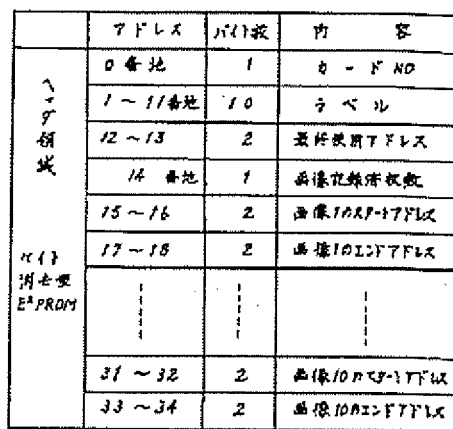 アドレス バイト数 内容
ヘッダ領域
0番地 1 カードNO
1〜11番地 10 ラベル
12〜13 2 最終使用アドレス
14番地 1 画像記録済枚数
15〜16 2 画像1のスタートアドレス
17〜18 2 画像1のエンドアドレス
バイト
消去型
E²PROM
31〜32 2 画像10のスタートアドレス
33〜34 2 画像10のエンドアドレス